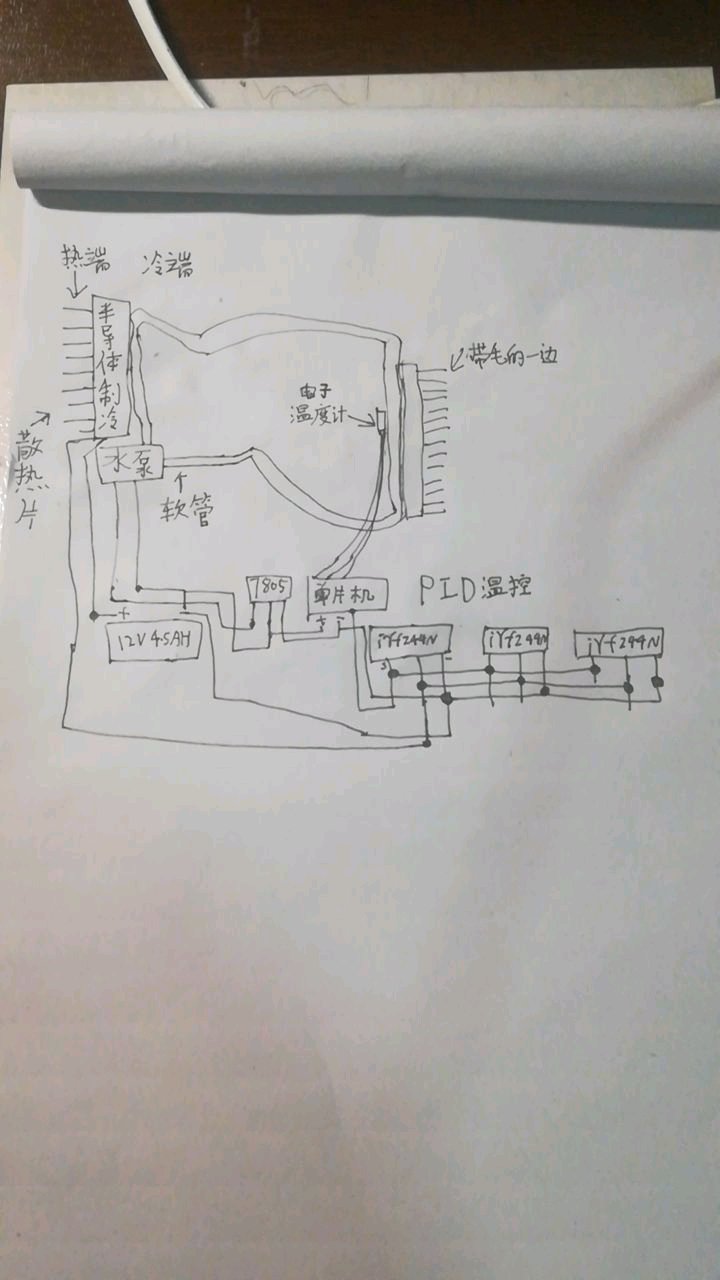 热端
冷端
半导体制冷
带毛的一边
电子
温度计
散热片
水泵
软管
7805
单片机
PID温控
+
-
12V45AH
+
-
iYf244N
iYf244N
iYf244N